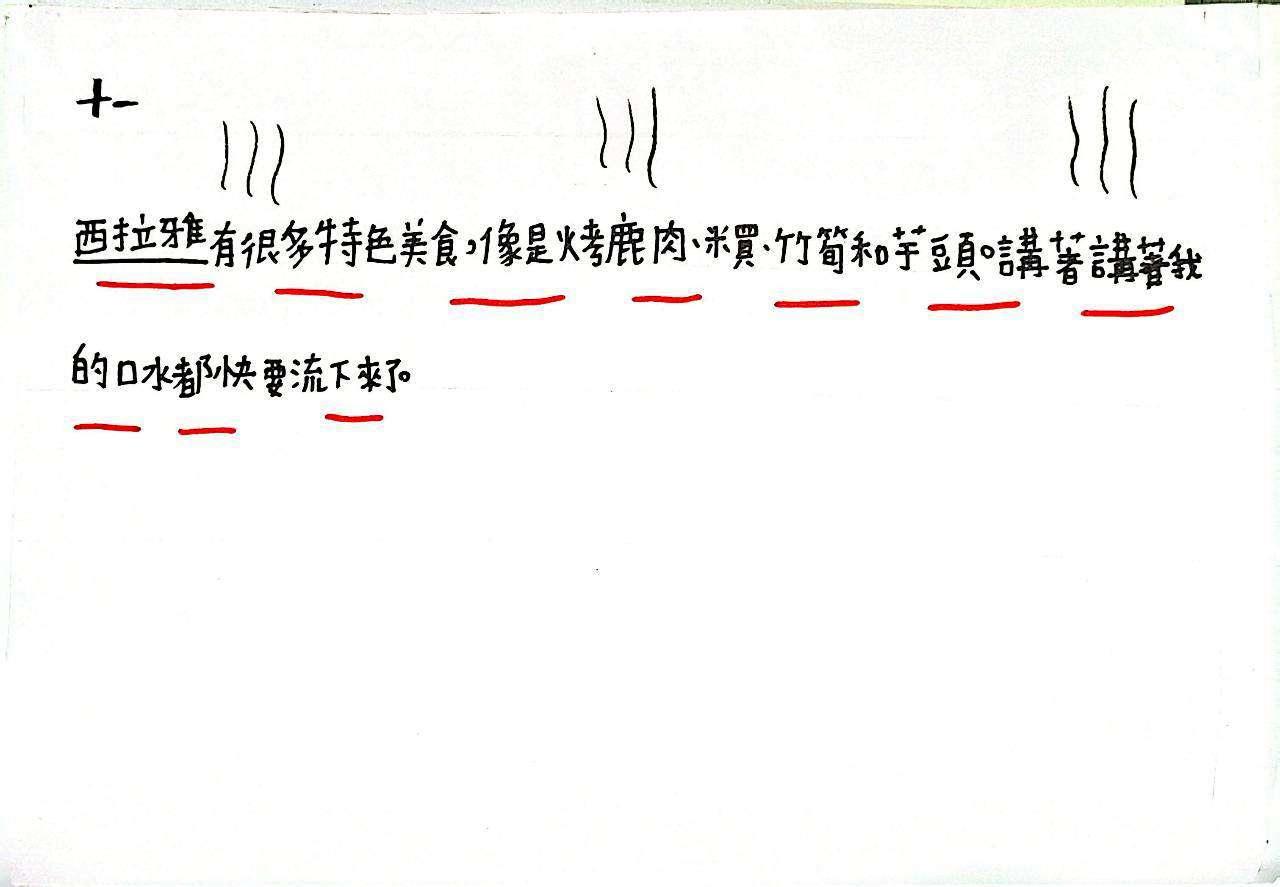 十一
西拉雅有很多特色美食,像是烤鹿肉、米買、竹筍和芋頭。講著講著我
的口水都快要流下來了。